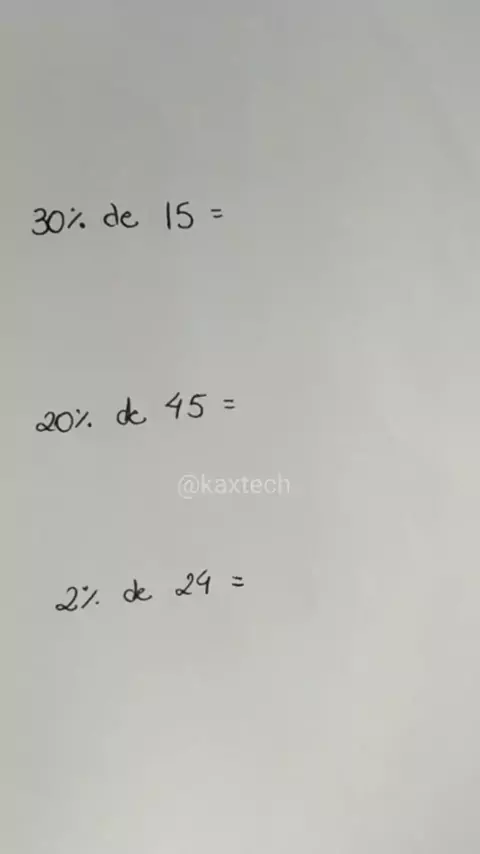 30% de 15 =
20% de 45 =
@kaxtech
2% de 24 =